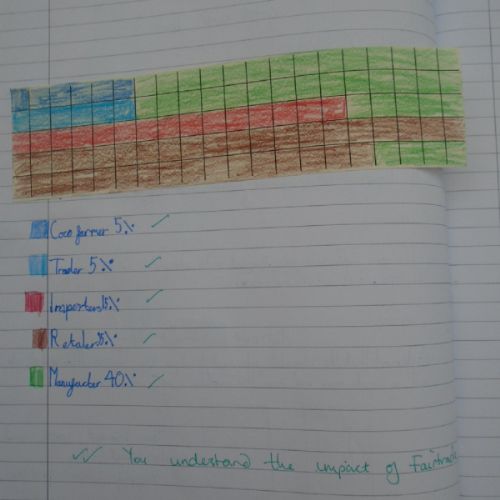 Coco farmer 5%
Trader 5%
Importers 15%
Retalers 35%
Manyfacter 40%
You understand the impact of Fairtrade